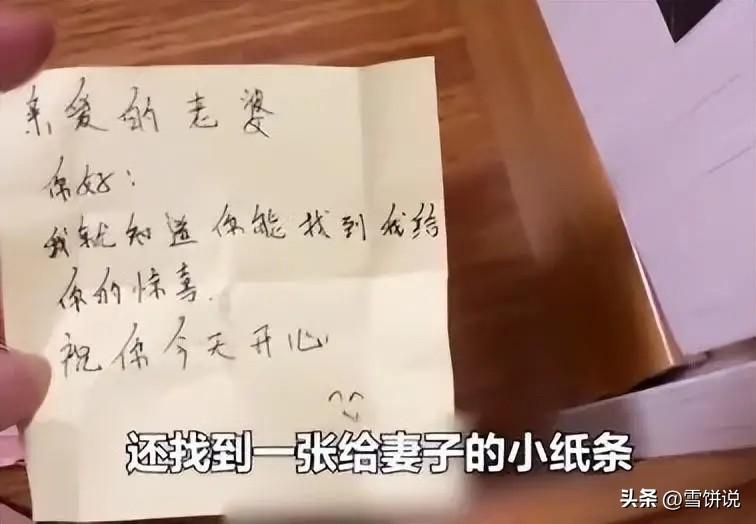 亲爱的老婆
你好：
我就知道你能找到我给
你的惊喜.
祝你今天开心
还找到一张给妻子的小纸条
头条 @雪饼说